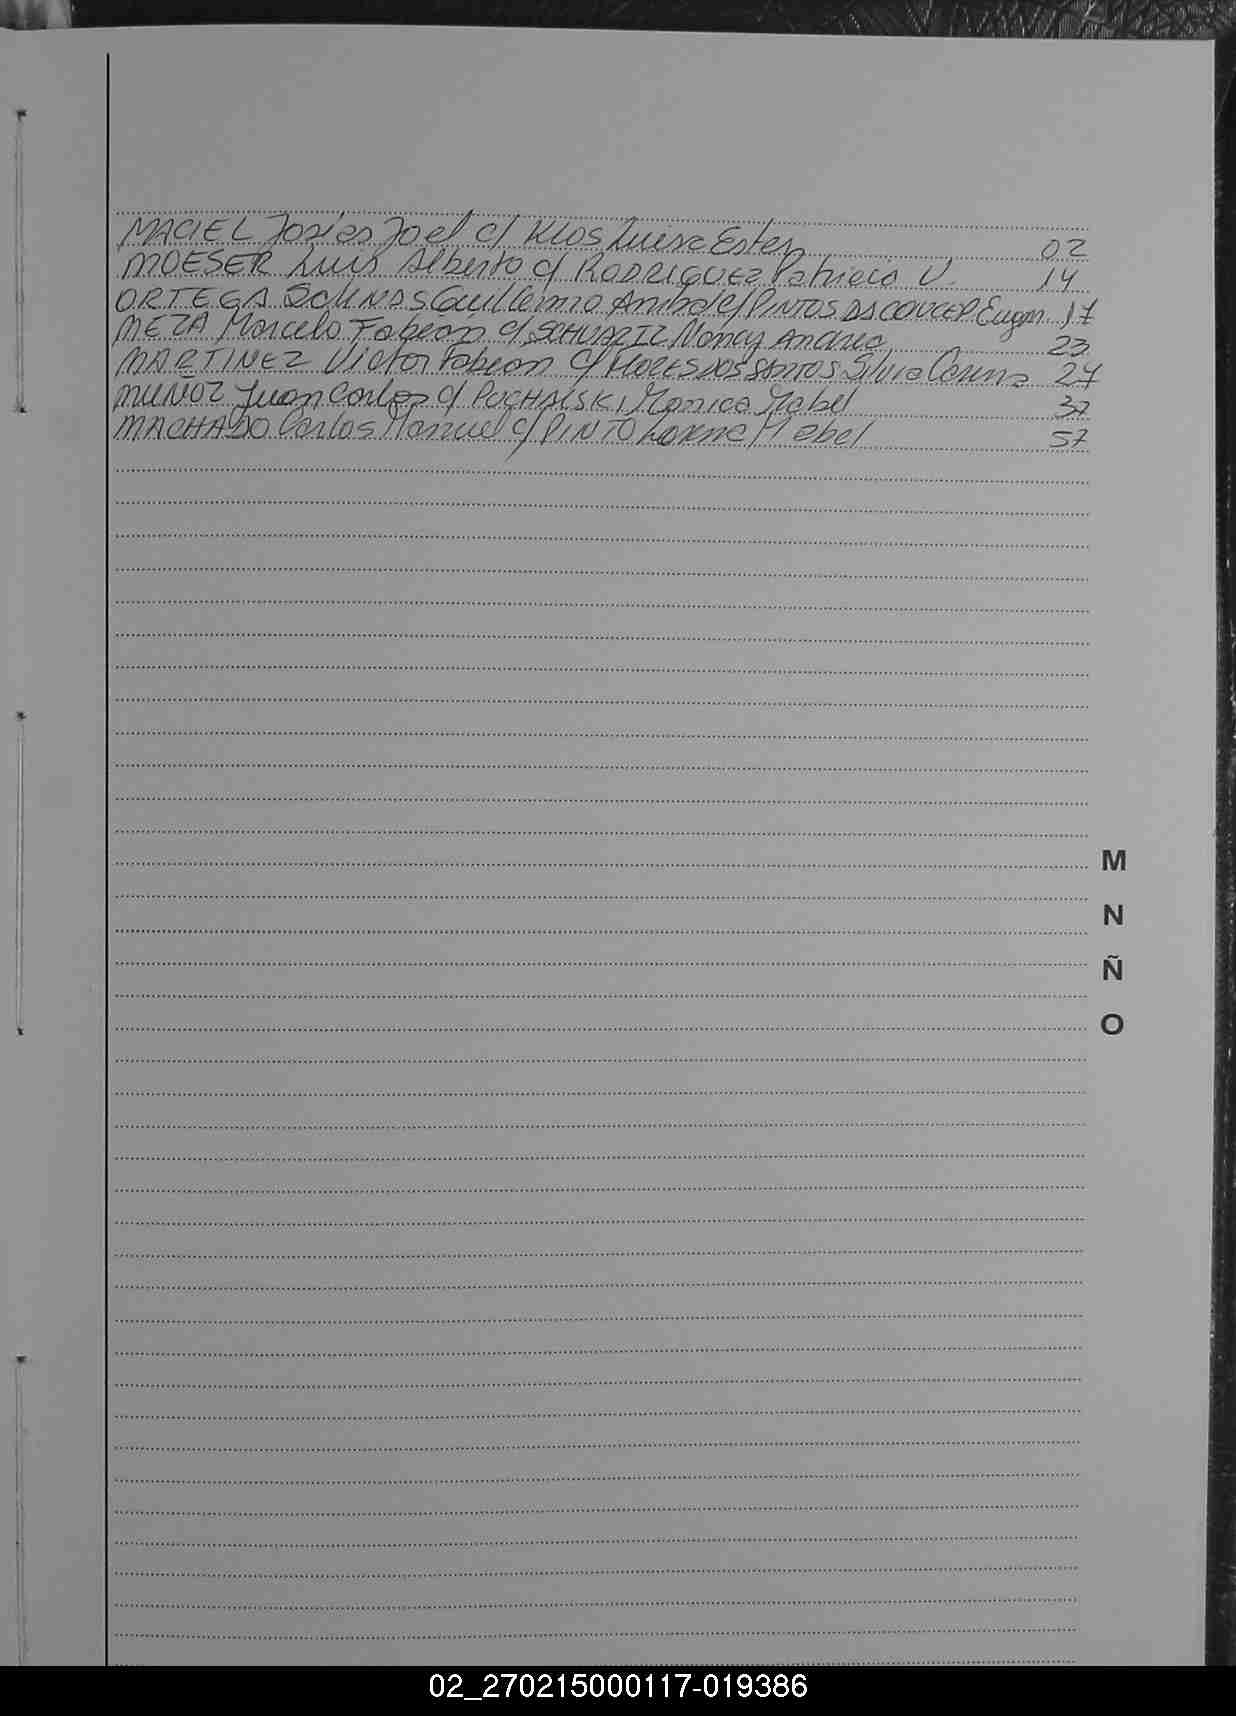 MACIEL Josías Joel c/ KLOS Luisa Ester 02
MOESER Luis Alberto c/ RODRIGUEZ Patricia V. 14
ORTEGA SALINAS Guillermo Anibal c/ PINTOS DA CONCEP Eugen. 17
MEZA Marcelo Fabian c/ SCHUARTZ Nancy Andrea 23
MARTINEZ Victor Fabian c/ FLORES DOS SANTOS Silvia Carina
MUÑOZ Juan Carlos c/ PUCHALSKI Monica Mabel 37
MACHADO Carlos Manuel c/ PINTO Lorena Mabel 57
M
N
Ñ
O
02_270215000117-019386